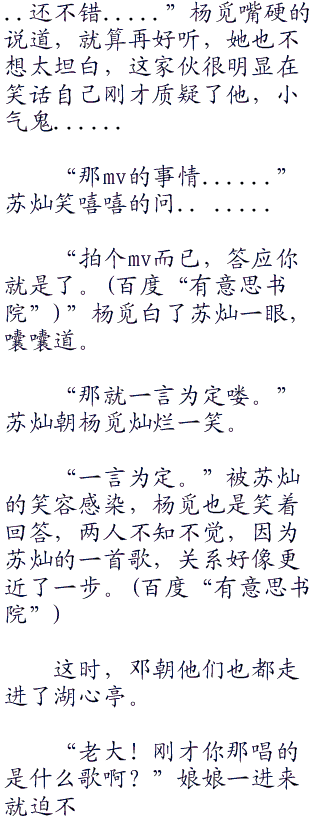 ..还不错.....”杨觅嘴硬的
说道，就算再好听，她也不
想太坦白，这家伙很明显在
笑话自己刚才质疑了他，小
气鬼......
“那mv的事情......”
苏灿笑嘻嘻的问.. .....
“拍个mv而已，答应你
就是了。(百度“有意思书
院”)”杨觅白了苏灿一眼，
嚷嚷道。
“那就一言为定喽。”
苏灿朝杨觅灿烂一笑。
“一言为定。”被苏灿
的笑容感染，杨觅也是笑着
回答，两人不知不觉，因为
苏灿的一首歌，关系好像更
近了一步。(百度“有意思书
院”)
这时，邓朝他们也都走
进了湖心亭。
“老大！刚才你那唱的
是什么歌啊？”娘娘一进来
就迫不